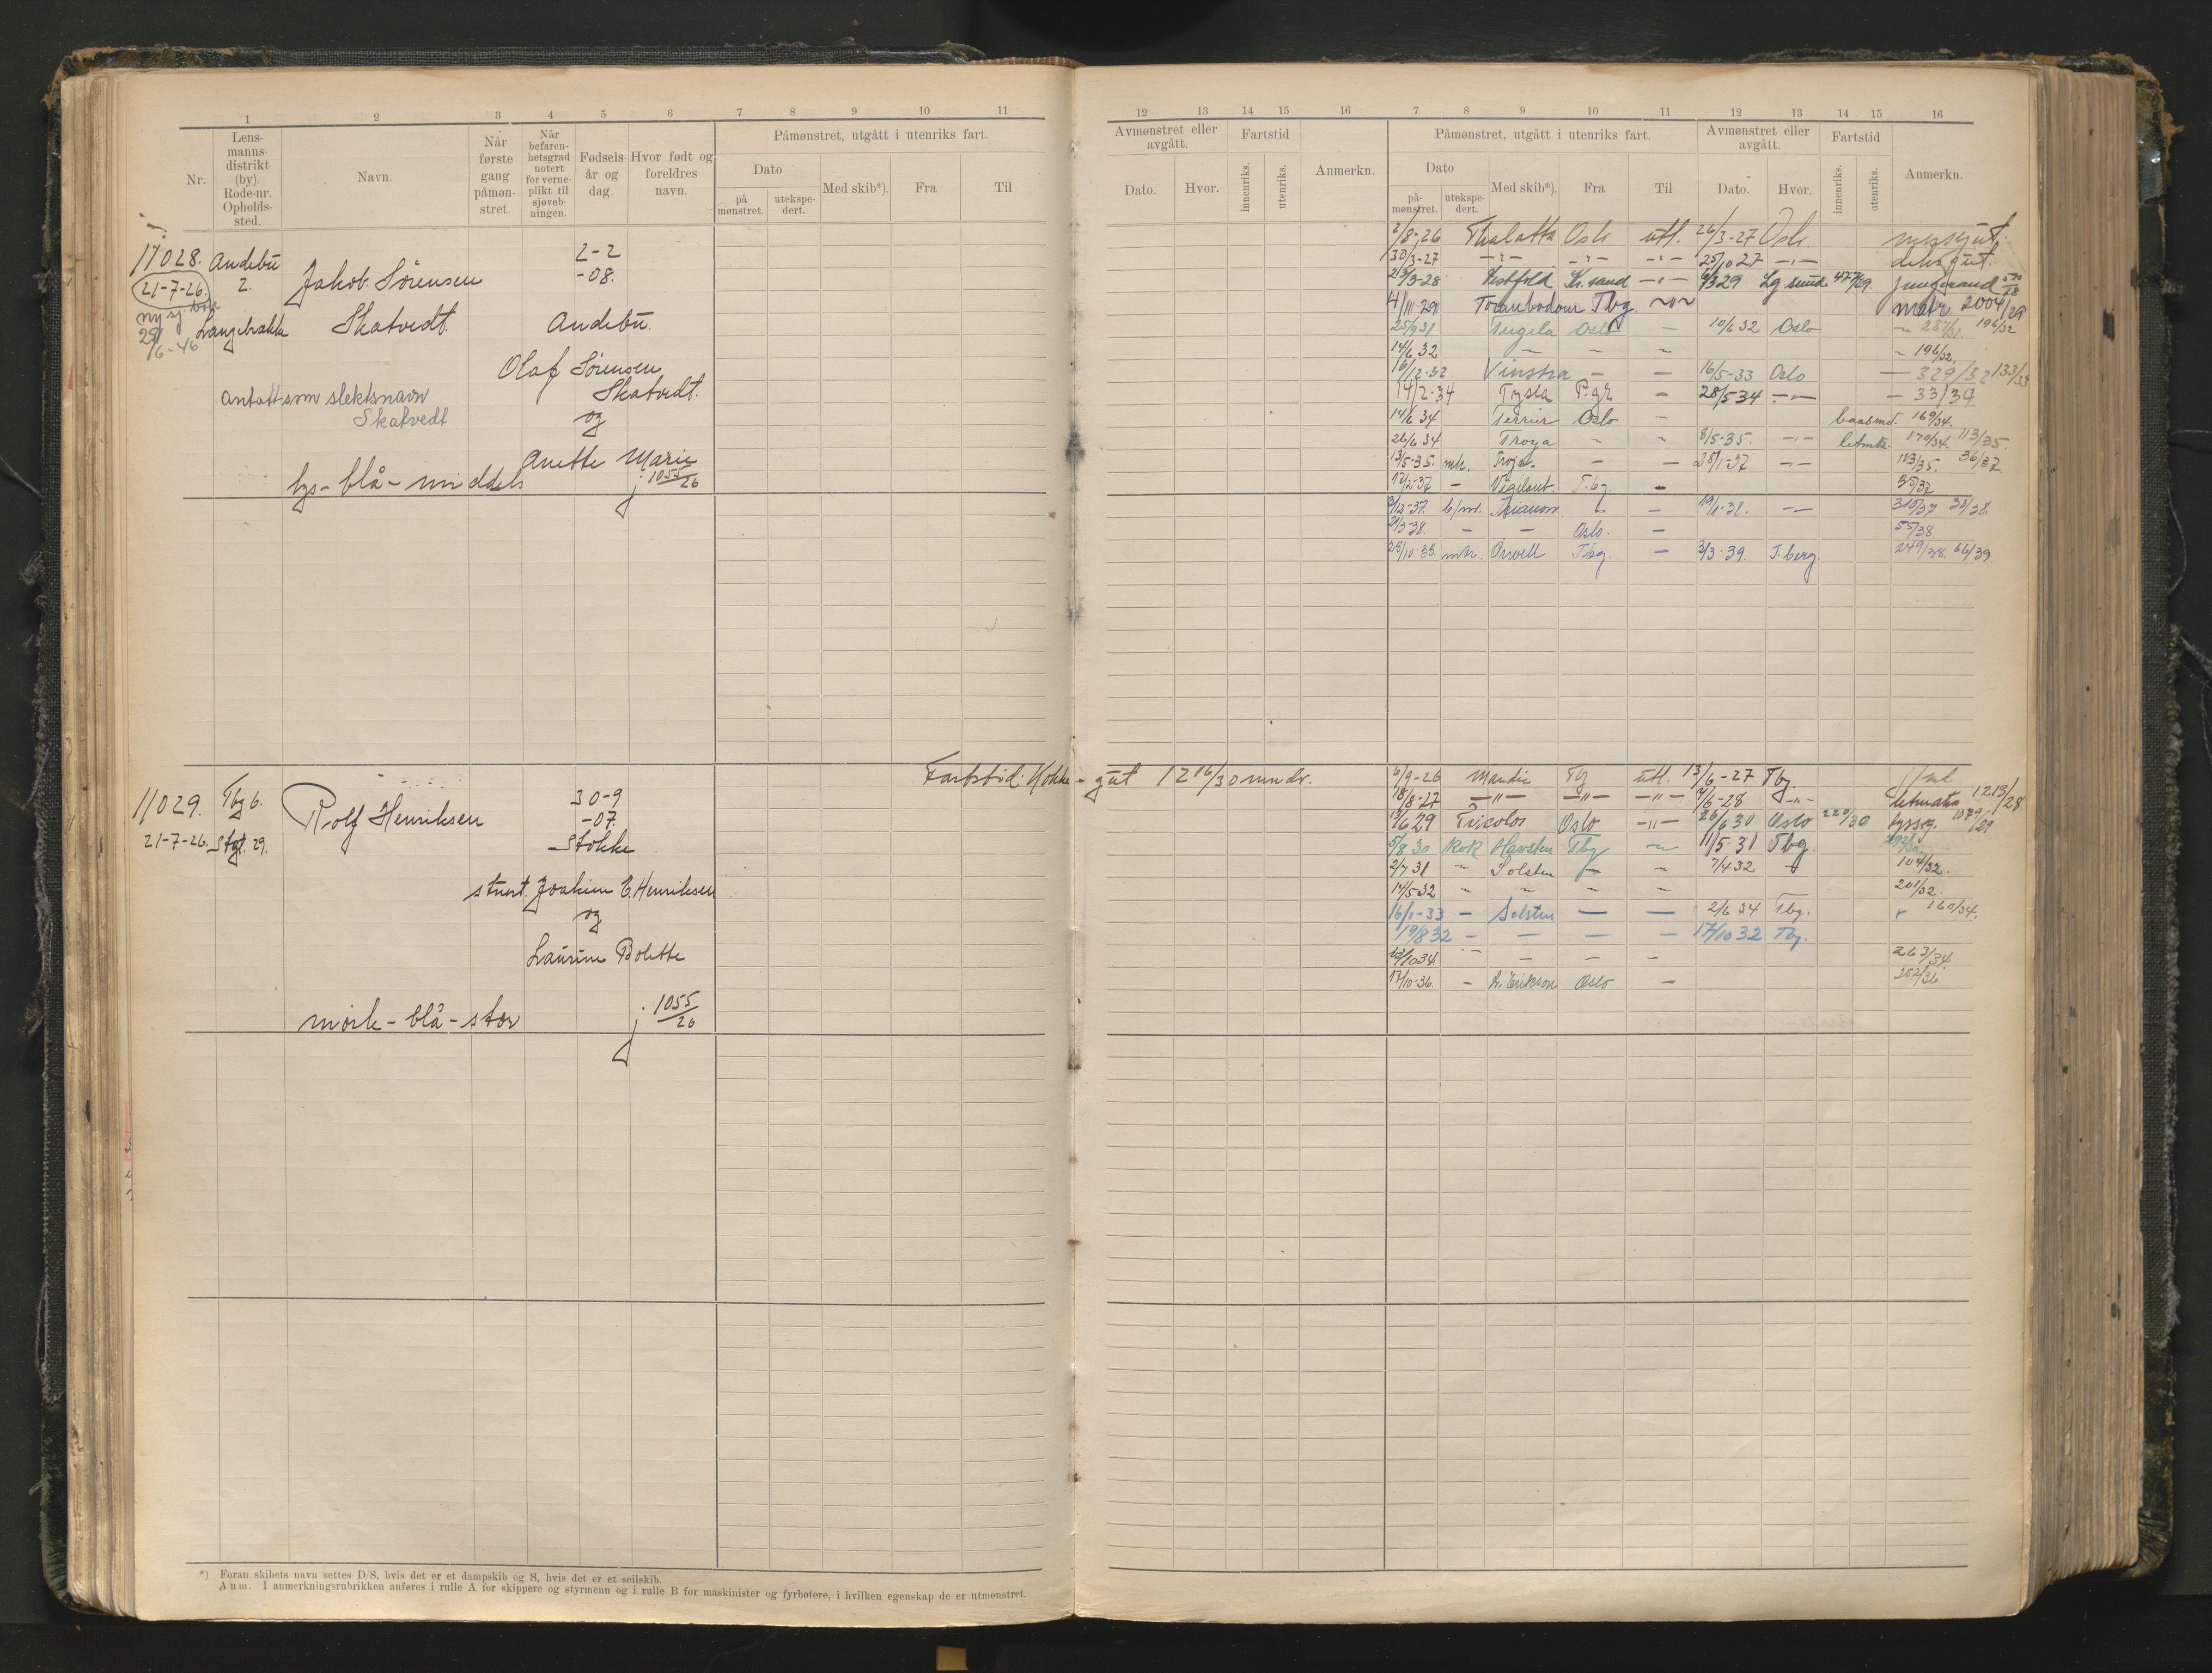 1 2 3 4 5 6 7 8 9 10 11
Nr. Lens-manns-distrikt (by). Rode-nr. Opholds-sted. Navn. Når første gang påmøn-stret. Når befaren-hetsgrad notert for verne-plikt til sjøveb-ningen. Fødsels-år og dag Hvor født og foreldres navn. Påmønstret, utgått i utenriks fart.
Dato Med skib*). Fra Til
på mønstret. utekspe-dert.
11028. Andebu 2-2
21-7-26. 2. Jakob Sørensen -08.
ny sj. bok Langebrekke Skatvedt. Andebu.
29/6-46
Olaf Sørensen
Skatvedt.
antatt som slektsnavn
Skatvedt
og
Anette Marie
lys - blå - middels j 1055/26
11029. Tbg 6. 30-9
21-7-26. Rolf Henriksen -07.
Stokke
stuert Joakim E. Henriksen
og
Laurine Bolette
mørk - blå - stor j 1055/26
*) Foran skibets navn settes D/S, hvis det er et dampskib og S, hvis det er et seilskib.
Anm. I anmerkningsrubrikken anføres i rulle A for skippere og styrmenn og i rulle B for maskinister og fyrbøtere, i hvilken egenskap de er utmønstret.
12 13 14 15 16 7 8 9 10 11 12 13 14 15 16
Avmønstret eller avgått. Fartstid Anmerkn. Påmønstret, utgått i utenriks fart. Avmønstret eller avgått. Fartstid Anmerkn.
Dato. Hvor. innenriks. utenriks. Dato Med skib*). Fra Til Dato. Hvor. innenriks. utenriks.
på-mønstret. utekspe-dert.
2/8-26 Thalatta Oslo utl. 26/3-27 Oslo. messgut.
30/3-27 -"- -"- -"- 25/10 27 -"- deksgut.
23/3-28 Vestfold Kr.sand -"- 6/3 29 Lg sund 477/29 jungmand
4/11-29 Troubadour Tbg -"- matr 2004/29
25/9 31 Tugela Oslo - 10/6 32 Oslo - 287/31 196/32
14/6 32 - - - - 196/32.
16/12-32 Vinstra - - 16/5-33 Oslo - 329/32 133/33
14/2-34 Tysla P.gr - 28/5-34 -"- - 33/34
14/6 34 Terrier Oslo - baasmd. 169/34.
26/6 34 Troja - - 8/5-35. -"- letmtr. 170/34. 113/35.
13/5-35. mtr. Troja. - - 28/1-37 -"- 113/35. 36/37
12/2-37 - Vigilant. T.bg. - 35/37
3/12-37. b/m. Trianon - - 19/1-38. -"- 310/37 30/38
21/3 38. - - Oslo. - 55/38.
28/10-38. mtr. Orwell Tbg - 3/3-39. T.berg 249/38. 66/39.
Fartstid: Kokke-gut 12 16/30 mndr.
6/9-26 Maudie Tbg utl. 13/6-27 Tbg.
18/8-27 -"- -"- -"- 4/6-28 -"- letmatr. 1213/28
13/6 29 Tricolor Oslo -"- 26/6 30 Oslo 220/30 byssg. 1079/29
5/8 30 Kok Havsten Tbg - 11/5-31 Tbg.
2/7 31 - Solsten - - 7/4 32 - 104/32.
14/5 32 - - - - 201/32.
16/1-33 - Solsten - - 2/6 34 Tbg. - 160/34.
19/8 32 - - - - 17/10 32 Tbg.
- - - 263/34
17/10-36. - L. Erikson Oslo - 252/36